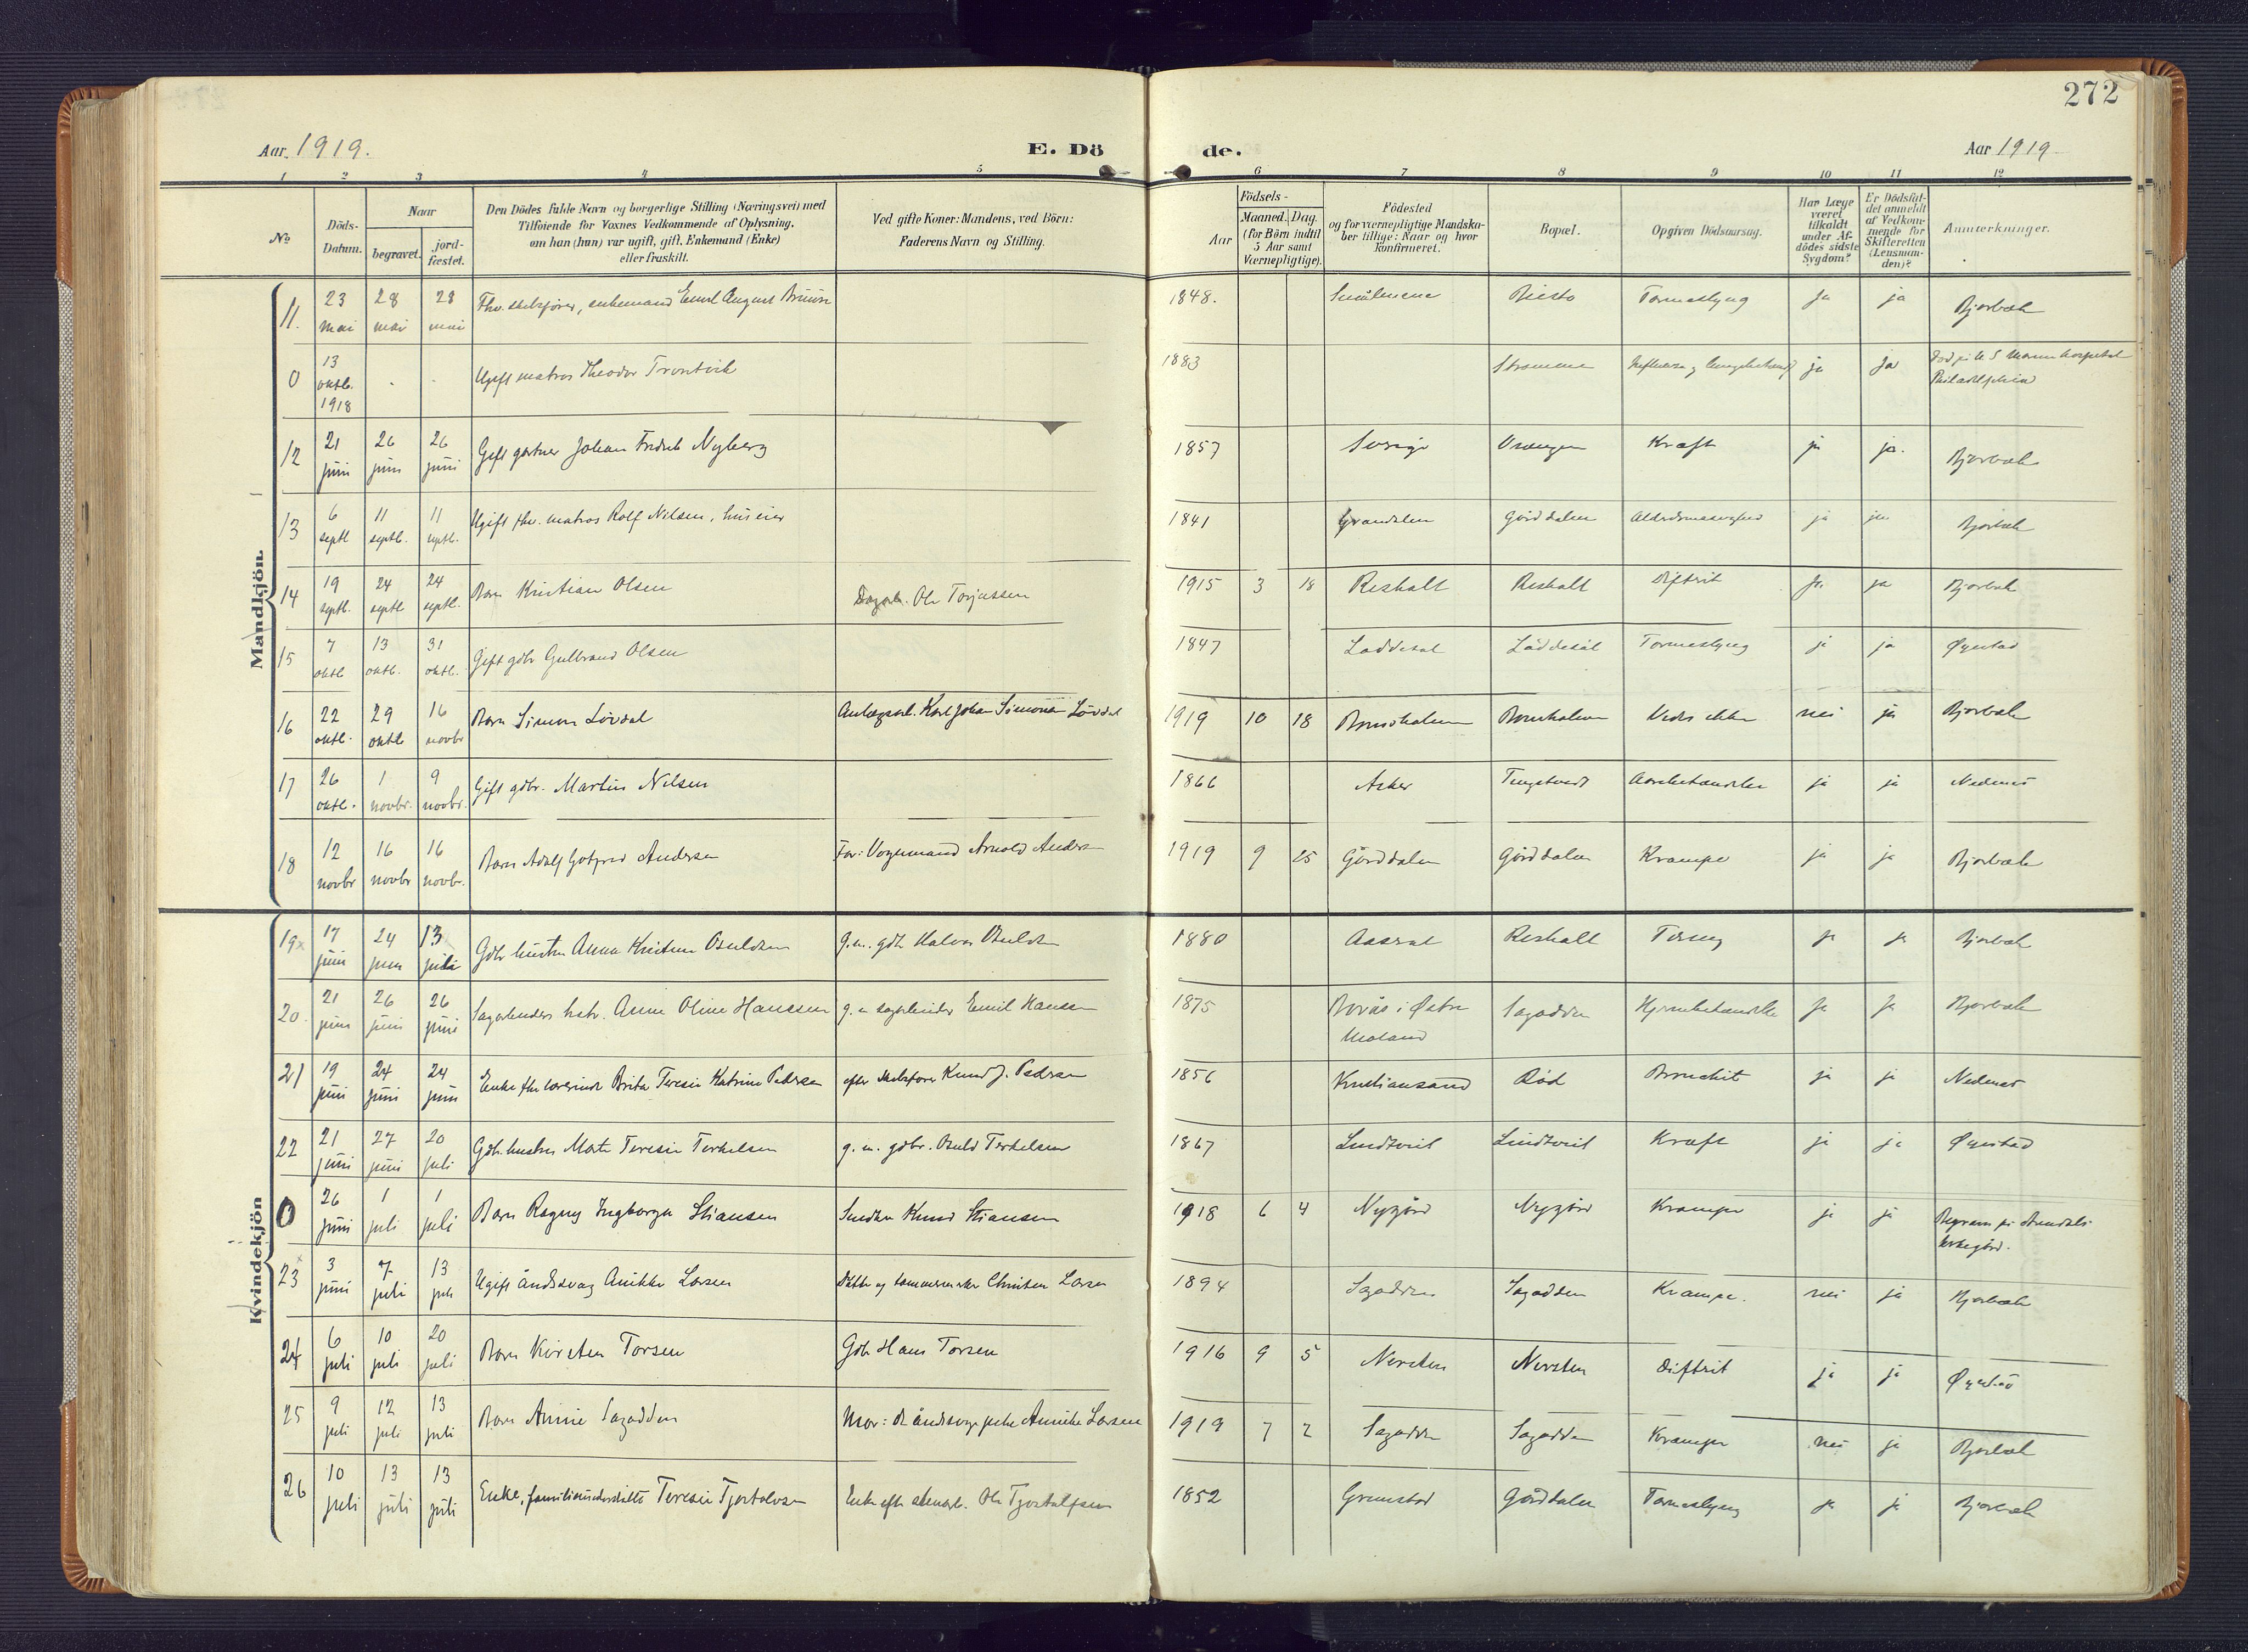 272
Aar 1919.
E. Dö de.
Aar 1919
1 2 3 4 5 6 7 8 9 10 11 12
No
Döds-Datum.
Naar
begravet.
jord-fæstet.
Den Dödes fulde Navn og borgerlige Stilling (Næringsvei) med
Tilföiende for Voxnes Vedkommende af Oplysning,
om han (hun) var ugift, gift, Enkemand (Enke)
eller fraskilt.
Ved gifte Koner: Mandens, ved Börn:
Faderens Navn og Stilling.
Födsels-
Aar
Maaned. Dag.
(for Börn indtil
5 Aar samt
Værnepligtige).
Födested
og for værnepligtige Mandska-
ber tillige: Naar og hvor
konfirmeret.
Bopæl.
Opgiven Dödsaarsag.
Har Læge
været
tilkaldt
under Af-
dödes sidste
Sygdom?
Er Dödsfal-
det anmeldt
af Vedkom-
mende for
Skifteretten
(Lensman-
den)?
Anmærkninger.
Mandkjön
11. 23 mai 28 mai 28 mai Fhv. skibsfører, enkemand Emil August 1848. ja ja Bjorbæk
0 13 oktb. 1918 Ugift matros Theodor 1883 Strømme ja ja Død på U S Marine hospital Philadelphia
12 21 juni 26 juni 26 juni Gift gartner Johan Fredrik Nyberg 1857 Sverige Kræft ja ja. Bjorbæk
13 6 septb 11 septb. 11 septb. Ugift fhv. matros Rolf Nilsen, huseier 1841 Gårddalen Alderdomssvaghed ja ja Bjorbæk
14 19 septb. 24 septb 24 septb. Barn Kristian Olsen Dagarb. Ole Torjussen 1915 3 18 Reshalt Reshalt Diftrit ja ja Bjorbæk
15 7 oktb 13 oktb. 31 oktb. Gift gdbr Gulbrand Olsen 1847 Løddesøl Løddesøl ja ja Øyestad
16 22 oktb. 29 oktb 16 novbr Barn Simon Løvdal Anlægsarb. Karl Johan Simonsen Løvdal 1919 10 18 Bronsholmen Bronsholmen Vides ikke nei ja Bjorbæk
17 26 oktb. 1 novbr. 9 novbr. Gift gdbr. Martin Nilsen 1866 Asker Tingstveit ja ja Nedenes
18 12 novbr 16 novbr 16 novbr. Barn Adolf Gotfred Andersen Far: Vognmand Arnold Andersen 1919 9 25 Gårddalen Gårddalen Krampe ja ja Bjorbæk
Kvindekjön
19x 17 juni 24 juni 13 juli Gdbr hustru Anna Kristine Osuldsen g.m. gdb Halvor Osuldsen 1880 Reshalt Tæring ja ja Bjorbæk
20. 21 juni 26 juni 26 juni Sagarbeiders hstr. Anne Oline Hanssen g. m sagarbeider Emil Hanssen 1875 i Østre Moland Sagodden Hjernebetændelse ja ja Bjorbæk
21 19 juni 24 juni 24 juni Enke fhv lærerinde Brita Teresie Katrine Pedersen efter skibsfører Knud J. Pedersen 1856 Kristiansand Rød Bronchit ja ja Nedenes
22 21 juni 27 juni 20 juli Gdb. hustru Mate Teresie Terkelsen g. m. gdbr. Osuld Terkelsen 1867 Lindtveit Lindtveit Kræft ja ja Øyestad
0 26 juni 1 juli 1 juli Barn Ragny Ingborga Stiansen Knud Stiansen 1918 6 4 Nygård Nygård Krampe ja ja Begravn på Arendals kirkegård.
23 x 3 juni 7 juli 13 juli Ugift åndssvag Anikke Larsen Datter av tømmermann Christen Larsen 1894 Sagodden Sagodden Krampe. nei ja Bjorbæk
24 6 juli 10 juli 20 juli Barn Kirsten Torsen Gdb Hans Torsen 1916 9 5 Nersten Nersten Diftrit ja ja Øyestad
25 9 juli 12 juli 13 juli Barn Annie Sagodden Mor: d. åndssvage pike Annikke Larsen 1919 7 2 Sagodden Sagodden Krampe nei ja Bjorbæk
26 10 juli 13 juli 13 juli Enke, familieunderstøttet Teresie Tjostolvsen Enke efter Ole Tjostolfsen 1852 Grimstad Gårddalen ja ja Bjorbæk